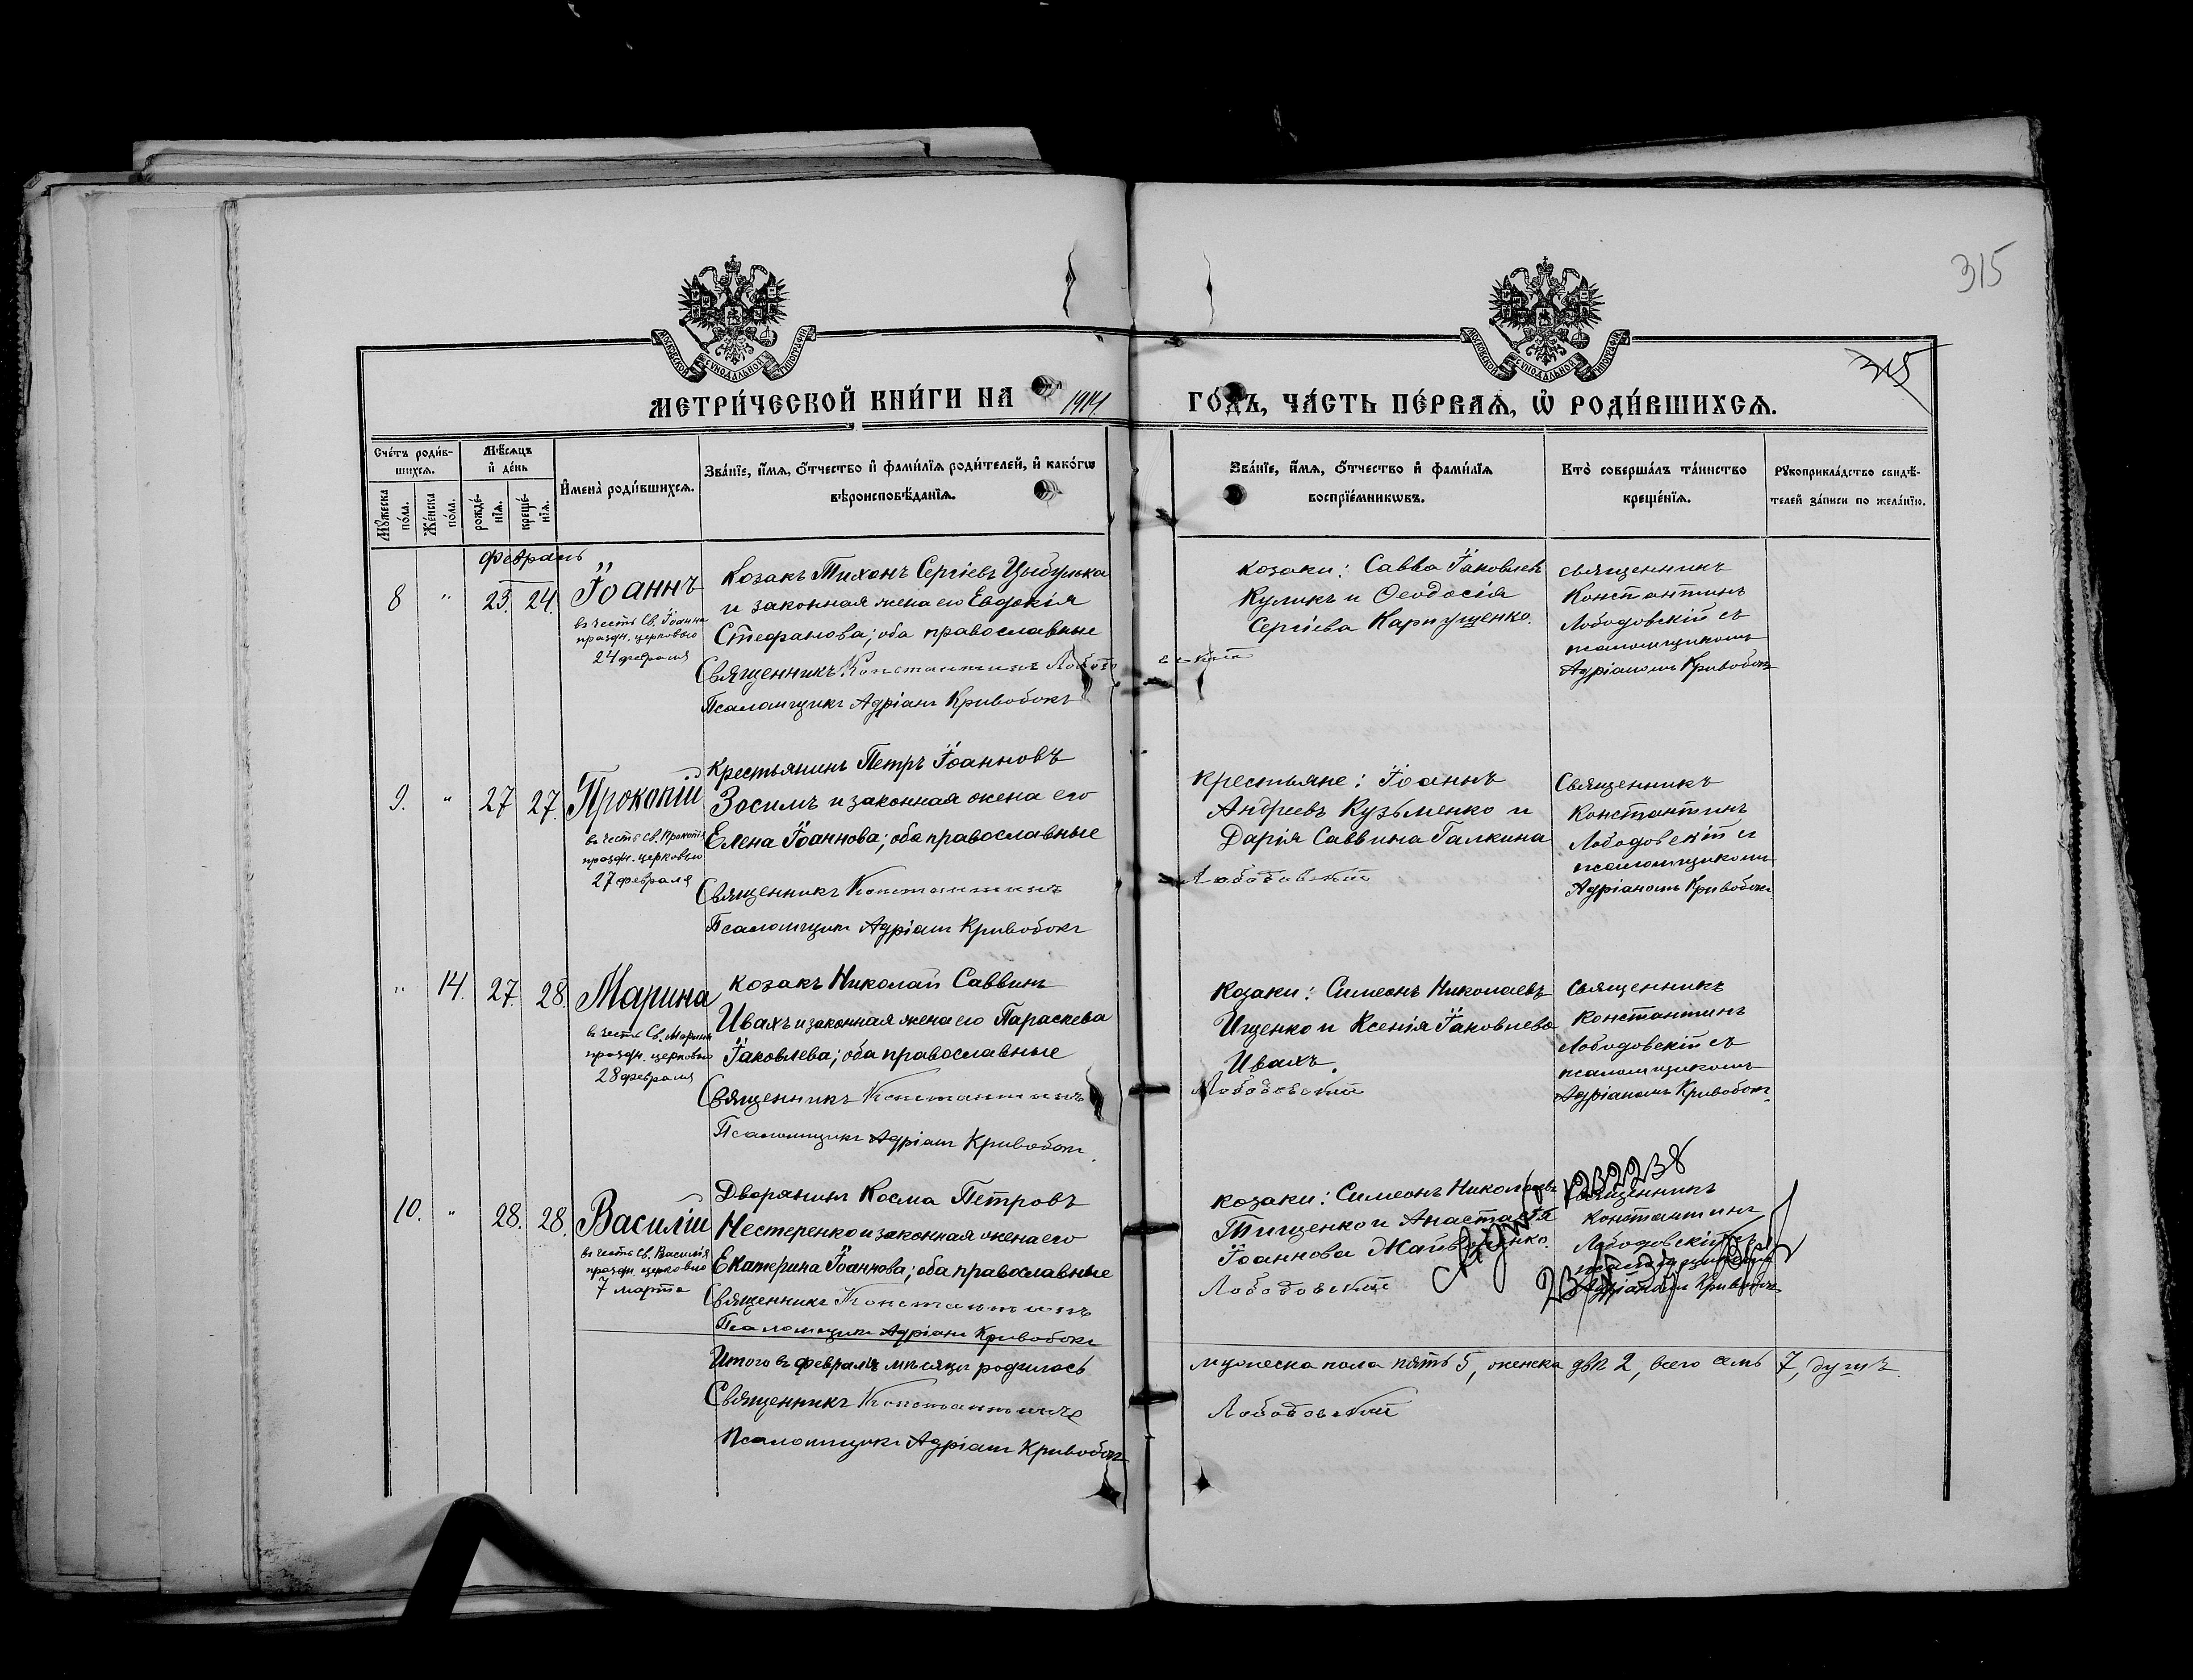 315
315
МОСКОВСКОЙ СѴНОДАЛЬНОЙ ТИПОГРАФІИ
МОСКОВСКОЙ СѴНОДАЛЬНОЙ ТИПОГРАФІИ
МЕТРИ́ЧЕСКОЙ КНИ́ГИ НА 1914
ГО́ДЪ, ЧА́СТЬ ПЕ́РВАѦ, Ѡ РОДИ́ВШИХСѦ.
Сче́тъ роди́в-
шихсѧ.
Мꙋ́жеска
по́ла.
Же́нска
по́ла.
Мѣ́сѧцъ
и҆ де́нь
рожде́-
нїѧ.
креще́-
нїѧ.
И҆мена̀ роди́вшихсѧ.
Зва́нїе, и҆́мѧ, ѻ҆́тчество и҆ фами́лїѧ роди́телей, и҆ како́гѡ
вѣроисповѣ́данїѧ.
Зва́нїе, и҆́мѧ, ѻ҆́тчество и҆ фами́лїѧ
воспрїе́мникѡвъ.
Кто̀ соверша́лъ та́инство
креще́нїѧ.
Рꙋкоприкла́дство свидѣ́-
телей за́писи по жела́нїю.
Февраль
8 " 23. 24.
Іоаннъ
въ честь Св. Іоанна
праздн. церковью
24 февраля
Козакъ Тихонъ Сергіевъ Цыбулька
и законная жена его Евдокія
Стефанова; оба православные
Священникъ Константинъ Лободо
Псаломщикъ Адріанъ Кривобокъ
козаки: Савва Іаковлевъ
Куликъ и Ѳеодосія
Сергіева Карпущенко.
вскій
священникъ
Константинъ
Лободовскій съ
псаломщикомъ
Адріаномъ Кривобокъ
9. " 27 27.
Прокопій
въ честь св. Прокопія
праздн. церковью
27 февраля
Крестьянинъ Петръ Іоанновъ
Зосимъ и законная жена его
Елена Іоаннова; оба православные
Священникъ Константинъ
Псаломщикъ Адріанъ Кривобокъ
крестьяне: Іоаннъ
Андреевъ Кузьменко и
Дарія Саввина Галкина
Лободовскій
Священникъ
Константинъ
Лободовскій съ
псаломщикомъ
Адріаномъ Кривобокъ
" 14. 27. 28.
Марина
въ честь Св. Марины
праздн. церковью
28 февраля
козакъ Николай Саввинъ
Ивахъ и законная жена его Параскева
Іаковлева; оба православные
Священникъ Константинъ
Псаломщикъ Адріанъ Кривобокъ.
Козаки: Симеонъ Николаевъ
Ищенко и Ксенія Іаковлева
Ивахъ.
Лободовскій
Священникъ
Константинъ
Лободовскій съ
псаломщикомъ
Адріаномъ Кривобокъ.
10. " 28. 28.
Василій
въ честь св. Василія
праздн. церковью
7 марта
Дворянинъ Косма Петровъ
Нестеренко и законная жена его
Екатерина Іоаннова; оба православные
Священникъ Константинъ
Псаломщикъ Адріанъ Кривобокъ
козаки: Симеонъ Николаевъ
Тищенко и Анастасія
Іоаннова
Лободовскій
Священникъ
Константинъ
Лободовскій съ
псаломщикомъ
Адріаномъ Кривобокъ
Итого въ февралѣ мѣсяцѣ родилось
мужеска пола пять 5, женска двѣ 2, всего семь 7, душъ.
Священникъ Константинъ
Лободовскій
Псаломщикъ Адріанъ Кривобокъ